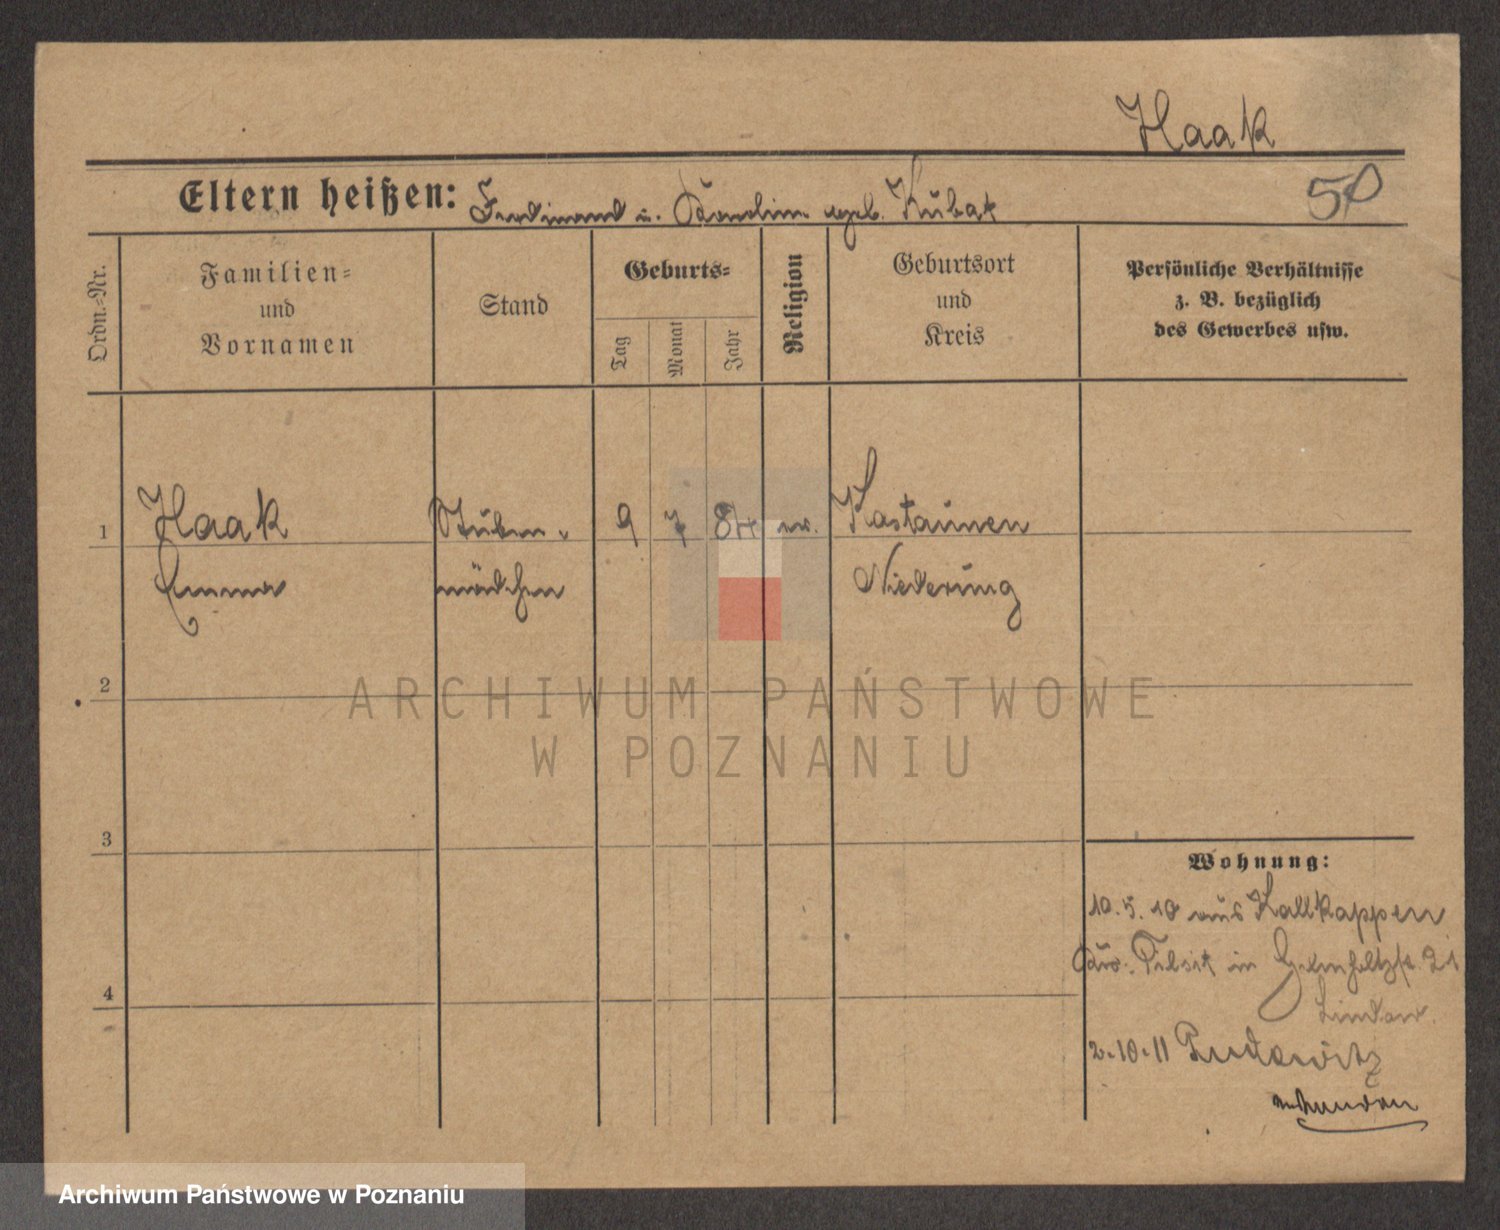 Haak
Eltern heißen: Ferdinand u. Karoline geb. Kubat
50
Ordn.-Nr.
Familien-
und
Vornamen
Stand
Geburts-
Tag
Monat
Jahr
Religion
Geburtsort
und
Kreis
Persönliche Verhältnisse
z. B. bezüglich
des Gewerbes usw.
1
Haak
Emma
Stuben-
mädchen
9
7
84
ev.
Kastaunen
Niederung
2
3
4
Wohnung:
10.5.10 aus Kallkappen
Krs. Tilsit in 21
2.10.11 Pudewitz
ARCHIWUM PAŃSTWOWE
W POZNANIU
Archiwum Państwowe w Poznaniu